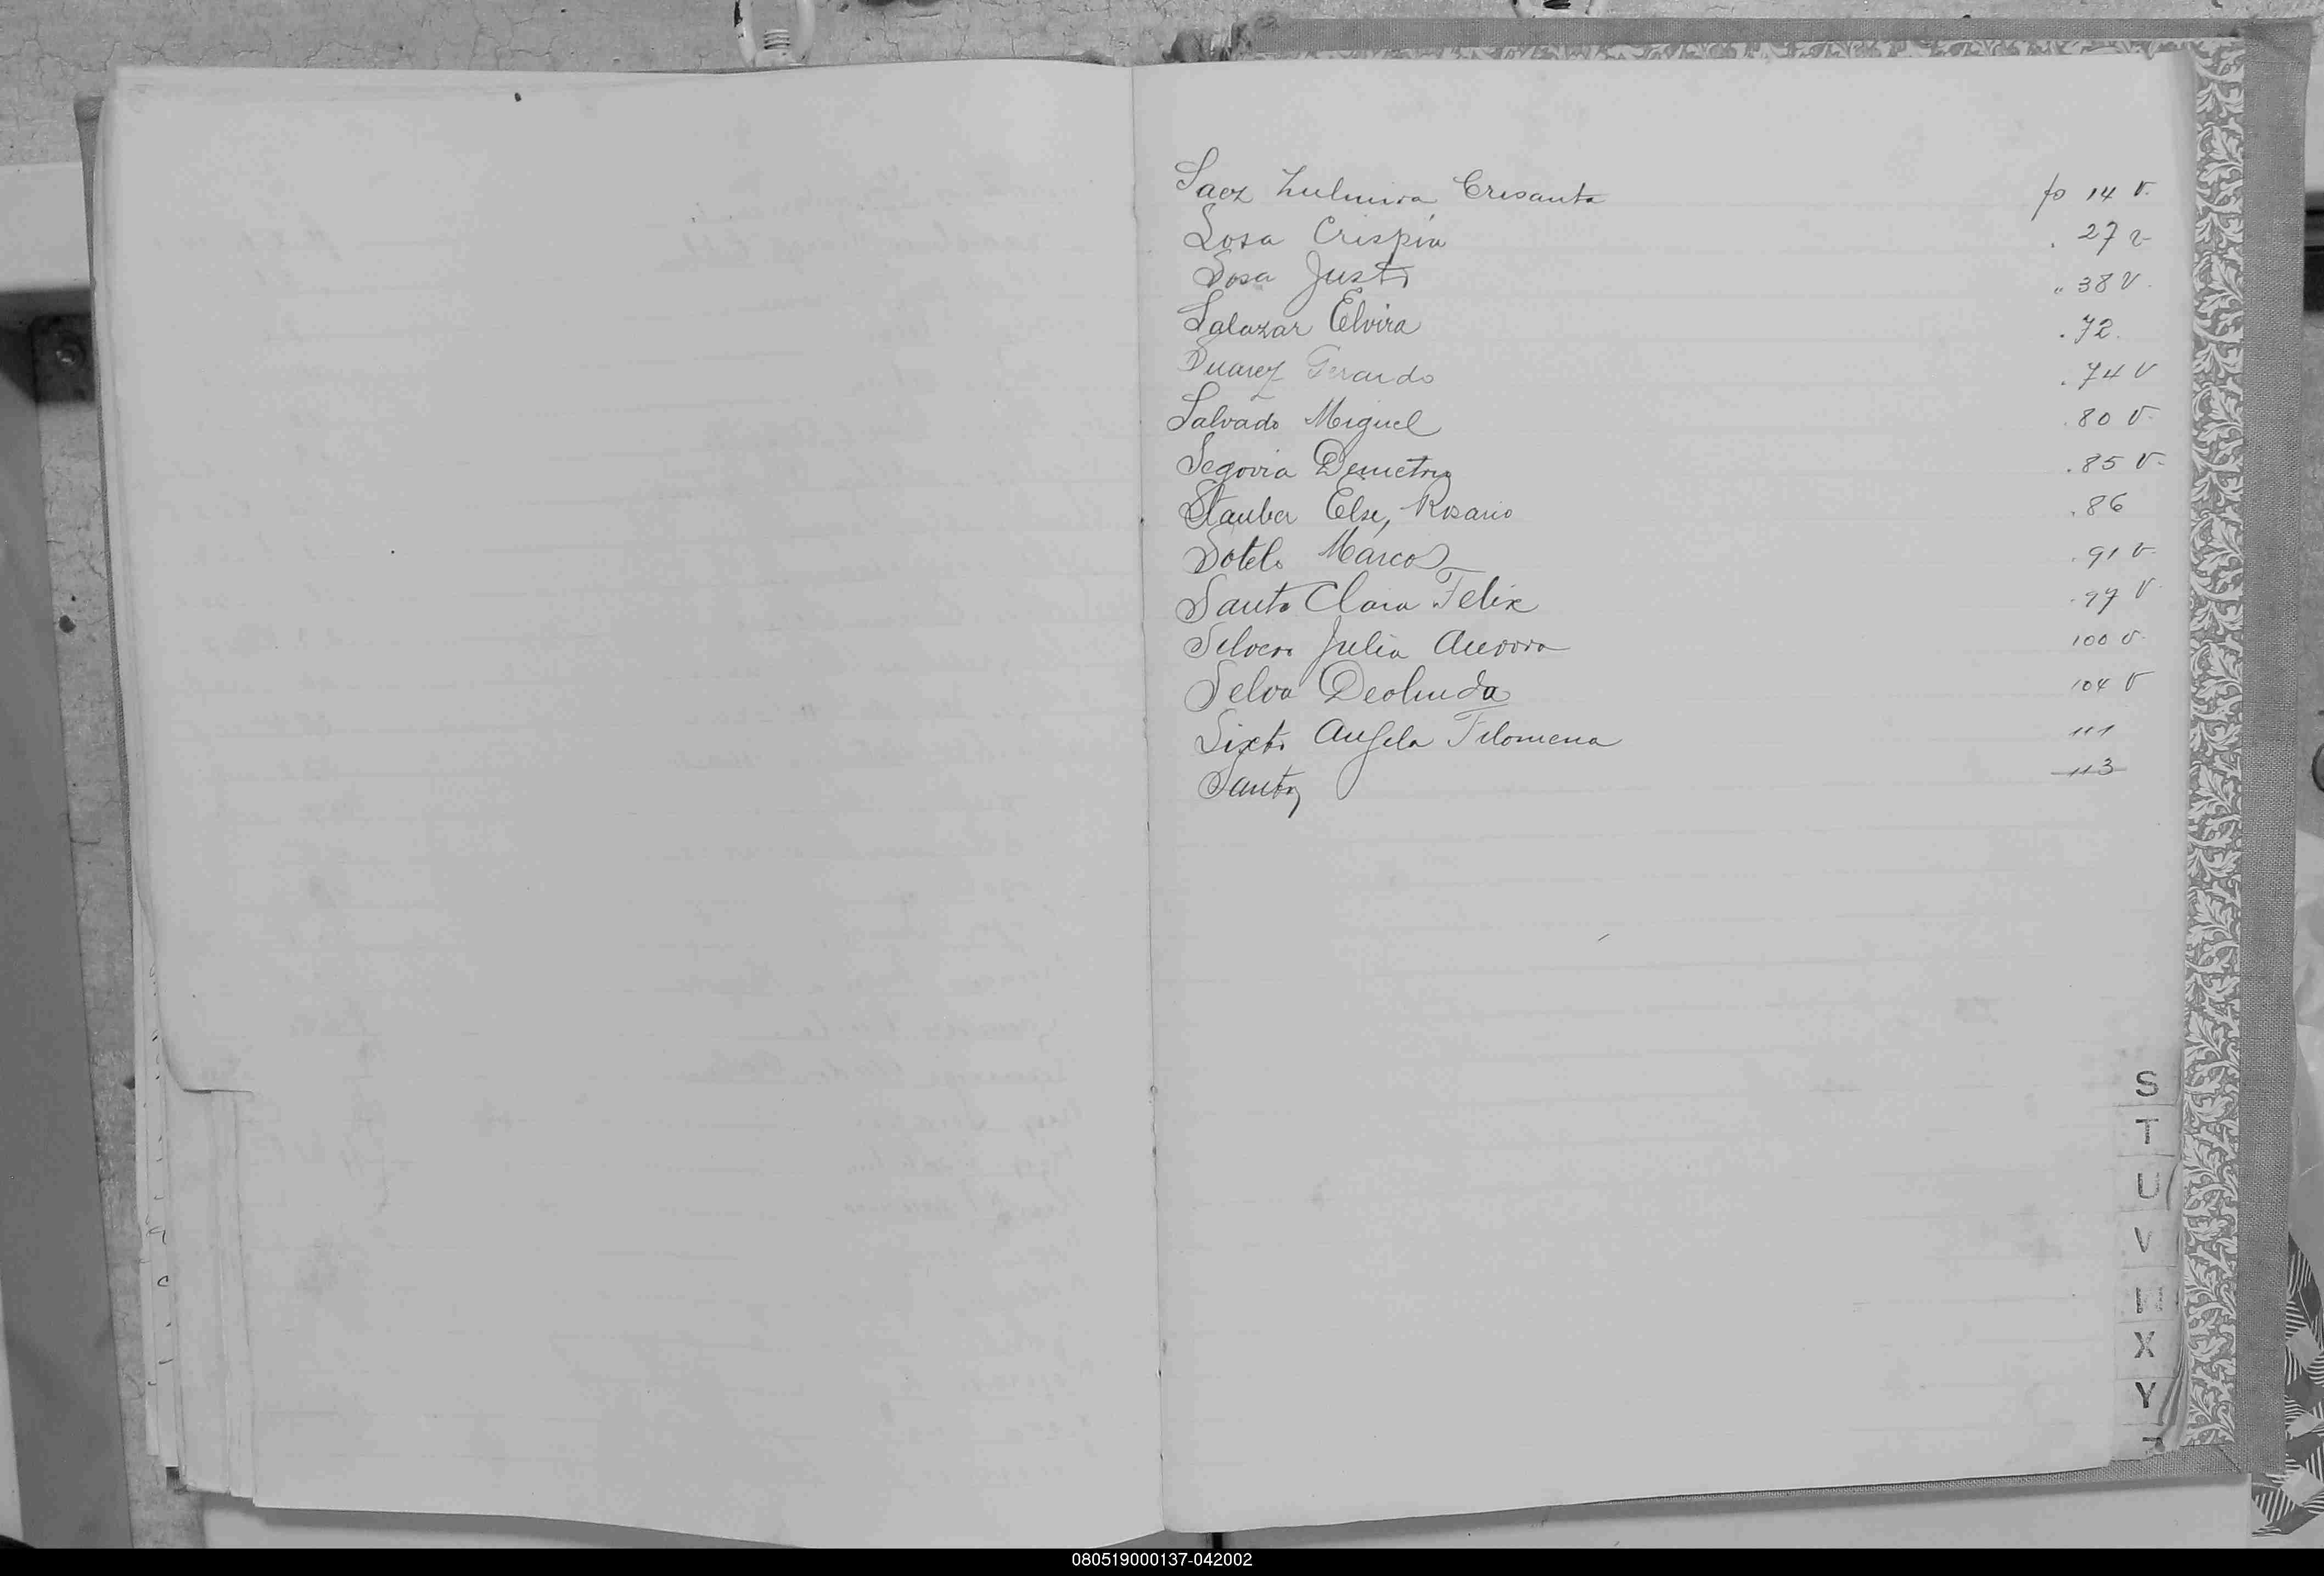 Saez Zulmira Crisanta fo 14 v.
Sosa Crispin . 27 v
Sosa Justo " 38 v.
Salazar Elvira . 72.
Suarez Gerardo . 74 v
Salvado Miguel . 80 v.
Segovia Demetrio . 85 v.
Stauber Else, Rosario . 86
Sotelo Marcos . 91 v.
Santa Clara Felix . 97 v
Silvero Julia Aurora 100 v.
Selva Deolinda 104 v
Sixto Angela Filomena 111
Santos 113
S
T
U
V
X
Y
080519000137-042002